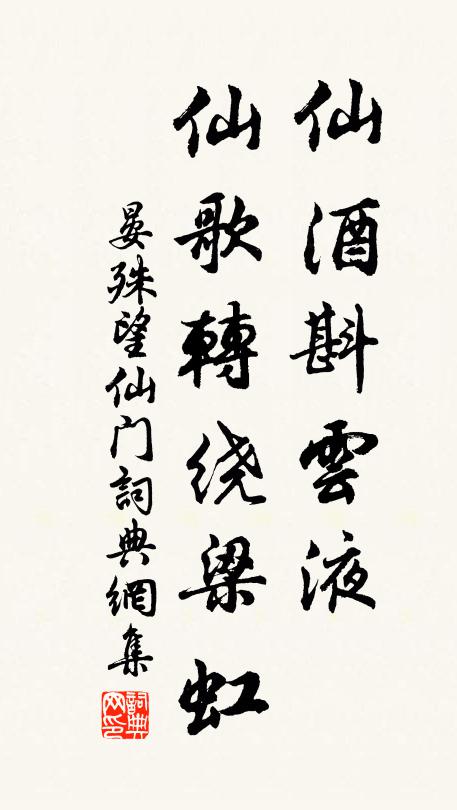 仙酒斟雲液
仙歌轉绕梁虹
晏殊望仙门詞典網集
詞典网印